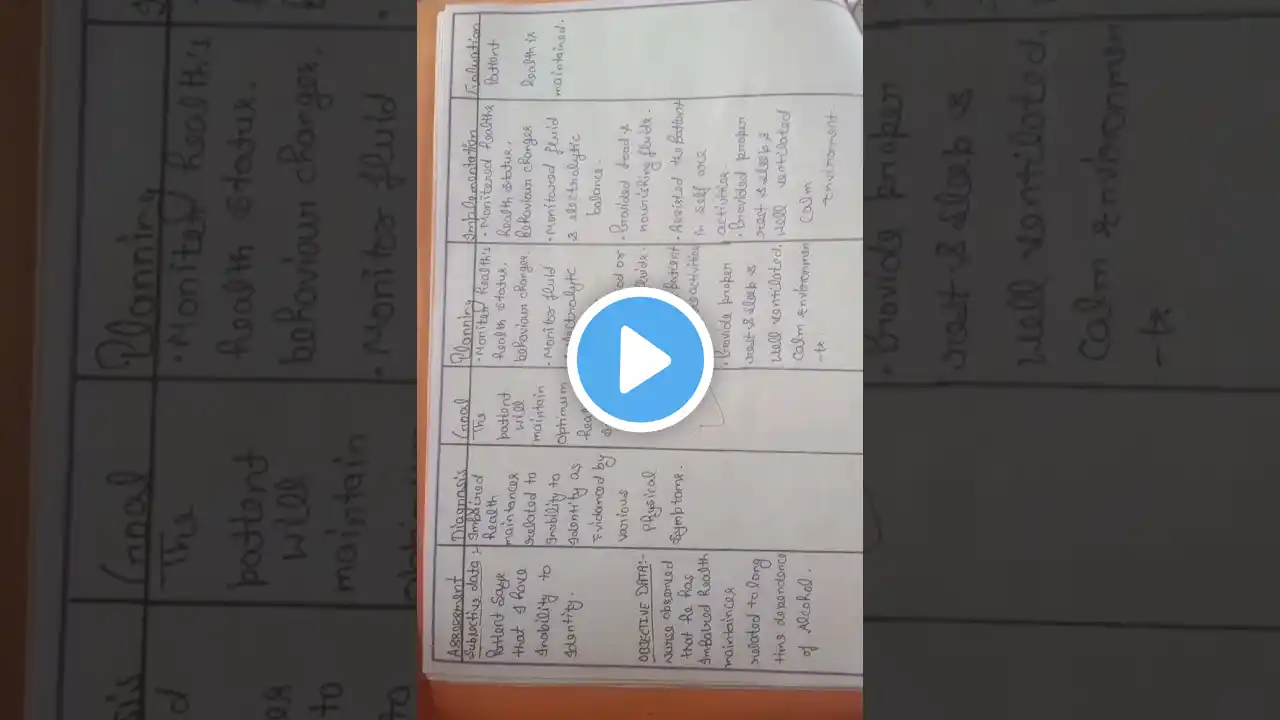 ASSESSMENT
Subjective data :-
Patient Says
that I have
Inability to
Identity.
OBJECTIVE DATA:-
Nurse observed
that he has
Impaired Health
maintainces
related to long
time dependence
of Alcohol.
Diagnosis
Impaired
health
maintances
related to
Inability to
Identity as
Evidenced by
various
Physical
Symptoms.
Goal
The
patient
will
maintain
optimum
Planning
• Moniter health's
health status,
behaviour changes,
• Monitor fluid
patient
• Provide proper
rest & sleep &
well ventilated,
Calm Environmen
-t
Implementation
• Monitered healths
health status,
Behaviour changes
• Monitored fluid
& electrolytic
balance.
• Provided food &
nourishing fluids.
• Assisted the patient
in self are
activities.
• Provided proper
rest & sleep &
well ventilated
Calm
Environment.
Evaluation
Patient
health is
maintained.